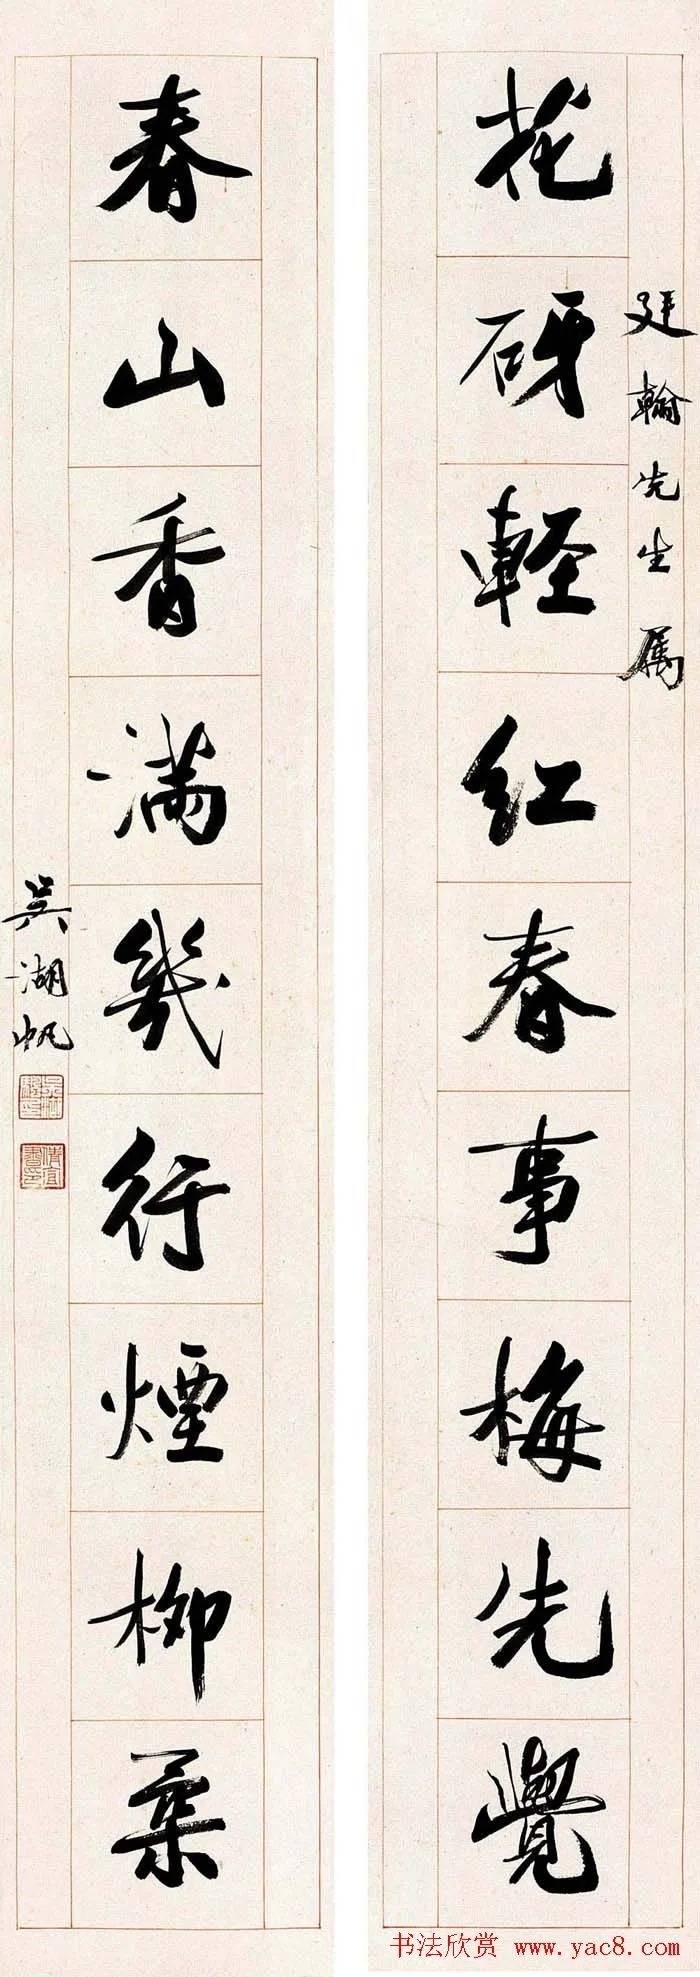 花砑輕紅春事梅先覺
廷翰先生属
春山香滿幾行煙柳柔
吳湖帆
书法欣赏 www.yac8.com